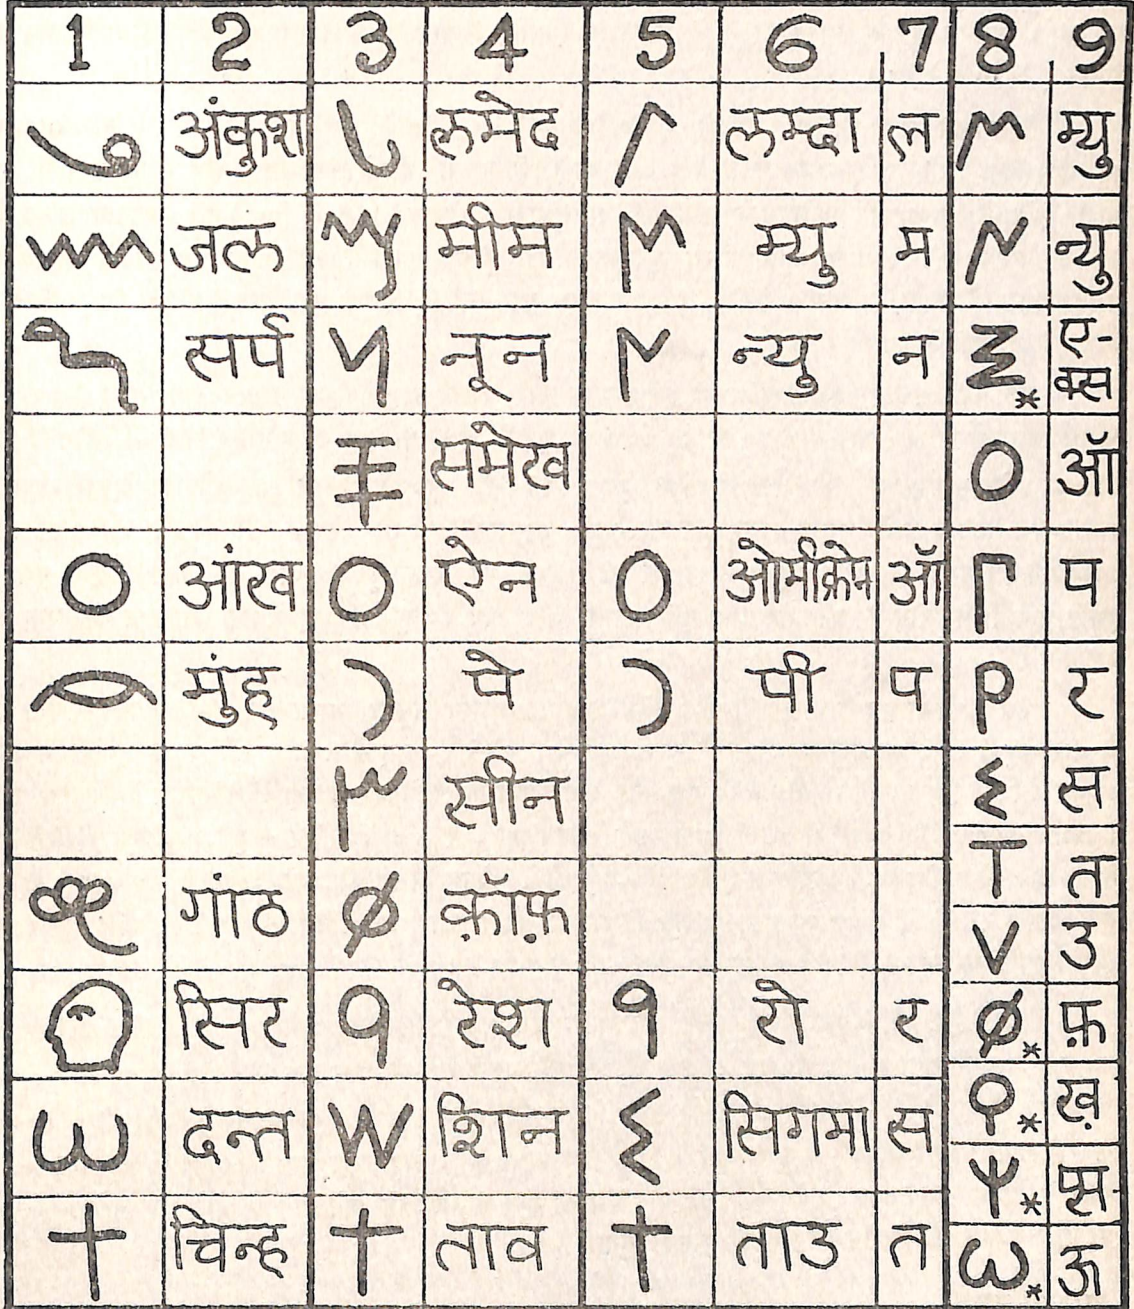 1 2 3 4 5 6 7 8 9
अंकुश लमेद लम्दा ल म्यु
जल मीम म्यु म न्यु
सर्प नून न्यु न ए-क्स
समेख ऑ
O आंख O ऐन O ओमीक्रोन ऑ Γ प
मुंह पे पी प P र
सीन Σ स
T त
गांठ Ø क़ॉफ़ V उ
सिर रेश रो र Ø* फ़
दन्त W शिन Σ सिगमा स * ख़
Ψ* प्स
† चिन्ह † ताव † ताउ त ω* ऊ